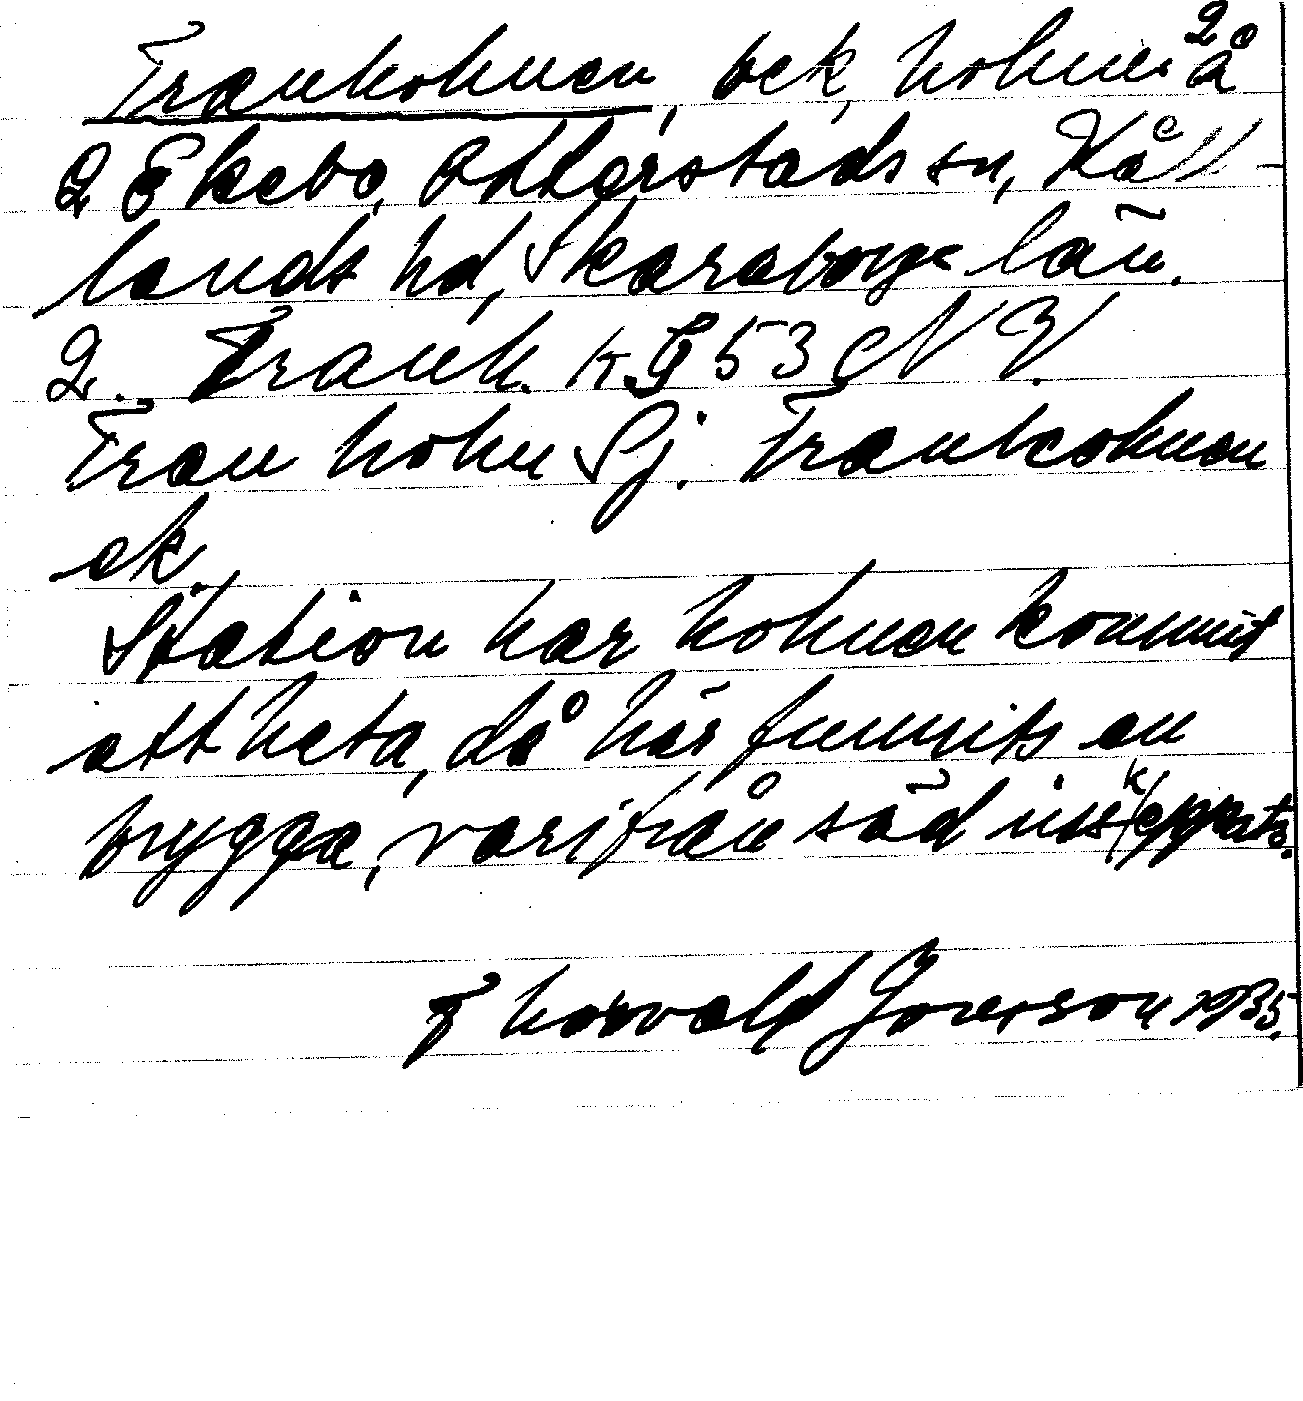 Trankohmen, bek, hohme å
2 Ekebo, Otterstads sn, Kål-
lands hd, Skaraborgs län.
2. Trank. K 9 53 NV.
Tran hohn Sj. Trankohmen
ek.
Station har hohmen kommit
att heta, då här funnits en
brygga, varifrån säd inskeppats.
Thorvald Jonerson 1935.